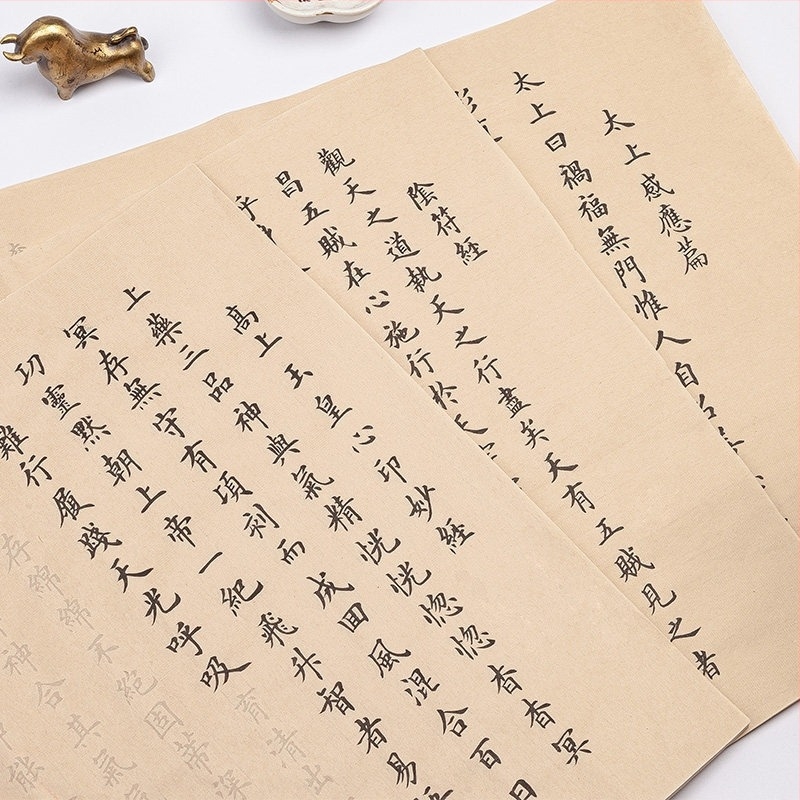 太上感應篇
太上曰禍福無門惟人自召
陰符經
觀天之道執天之行盡矣天有五賊見之者
昌五賊在心施行於天
乎
高上玉皇心印妙經
上藥三品神與氣精恍恍惚惚杳杳冥
冥存無守有頃刻而成回風混合百日
功靈默朝上帝一紀飛升智者易
難行履踐天光呼吸育清出
存綿綿不絕固蒂深
神合其氣
能